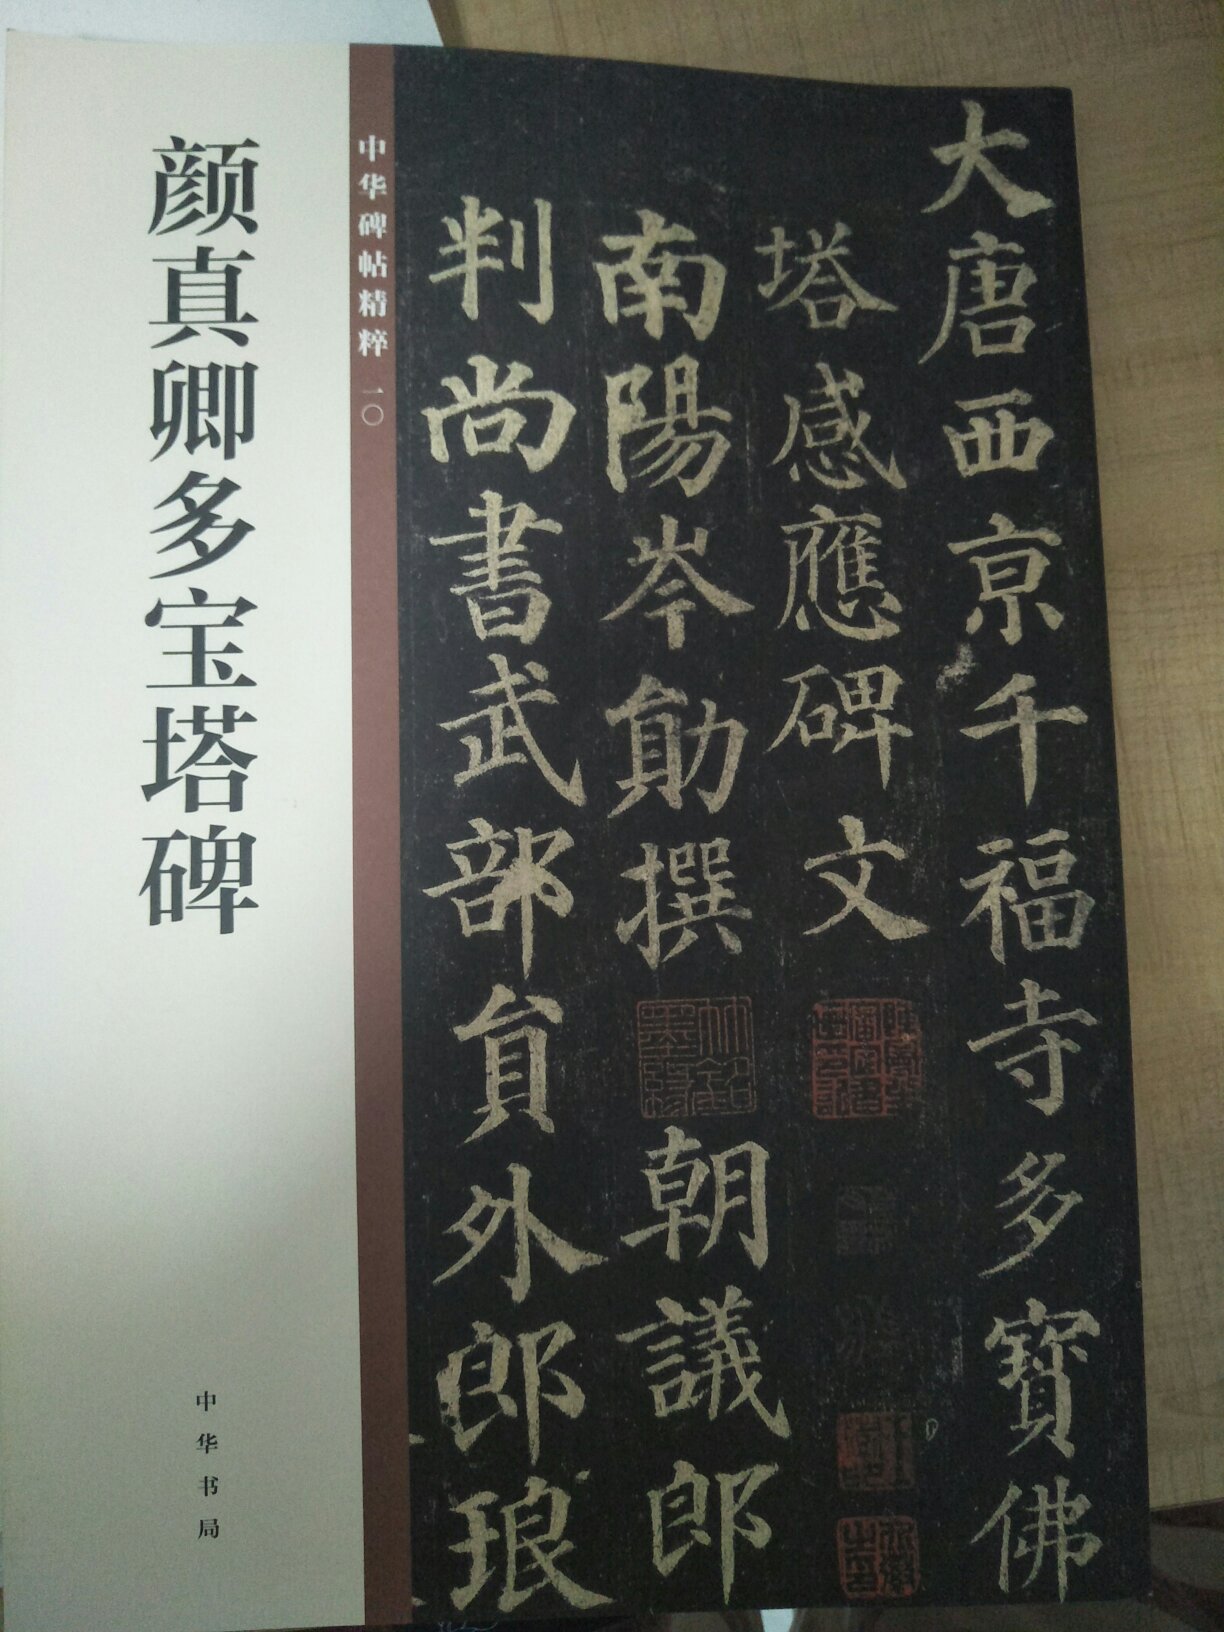 大唐西京千福寺多寶佛
塔感應碑文
南陽岑勛撰 朝議郎
判尚書武部員外郎琅
中华碑帖精粹 一〇
颜真卿多宝塔碑
中华书局